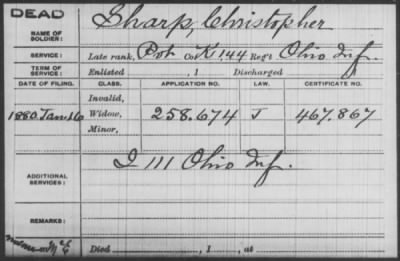 DEAD
NAME OF SOLDIER: Sharp, Christopher
SERVICE: Late rank, Pvt Co. K, 144 Reg't Ohio Inf.
TERM OF SERVICE: Enlisted , 1 Discharged
DATE OF FILING. CLASS. APPLICATION NO. LAW. CERTIFICATE NO.
Invalid,
1880. Jan. 16 Widow, 258.674 J 467.867
Minor,
ADDITIONAL SERVICES: I 111 Ohio Inf.
REMARKS:
Died , 1 , at